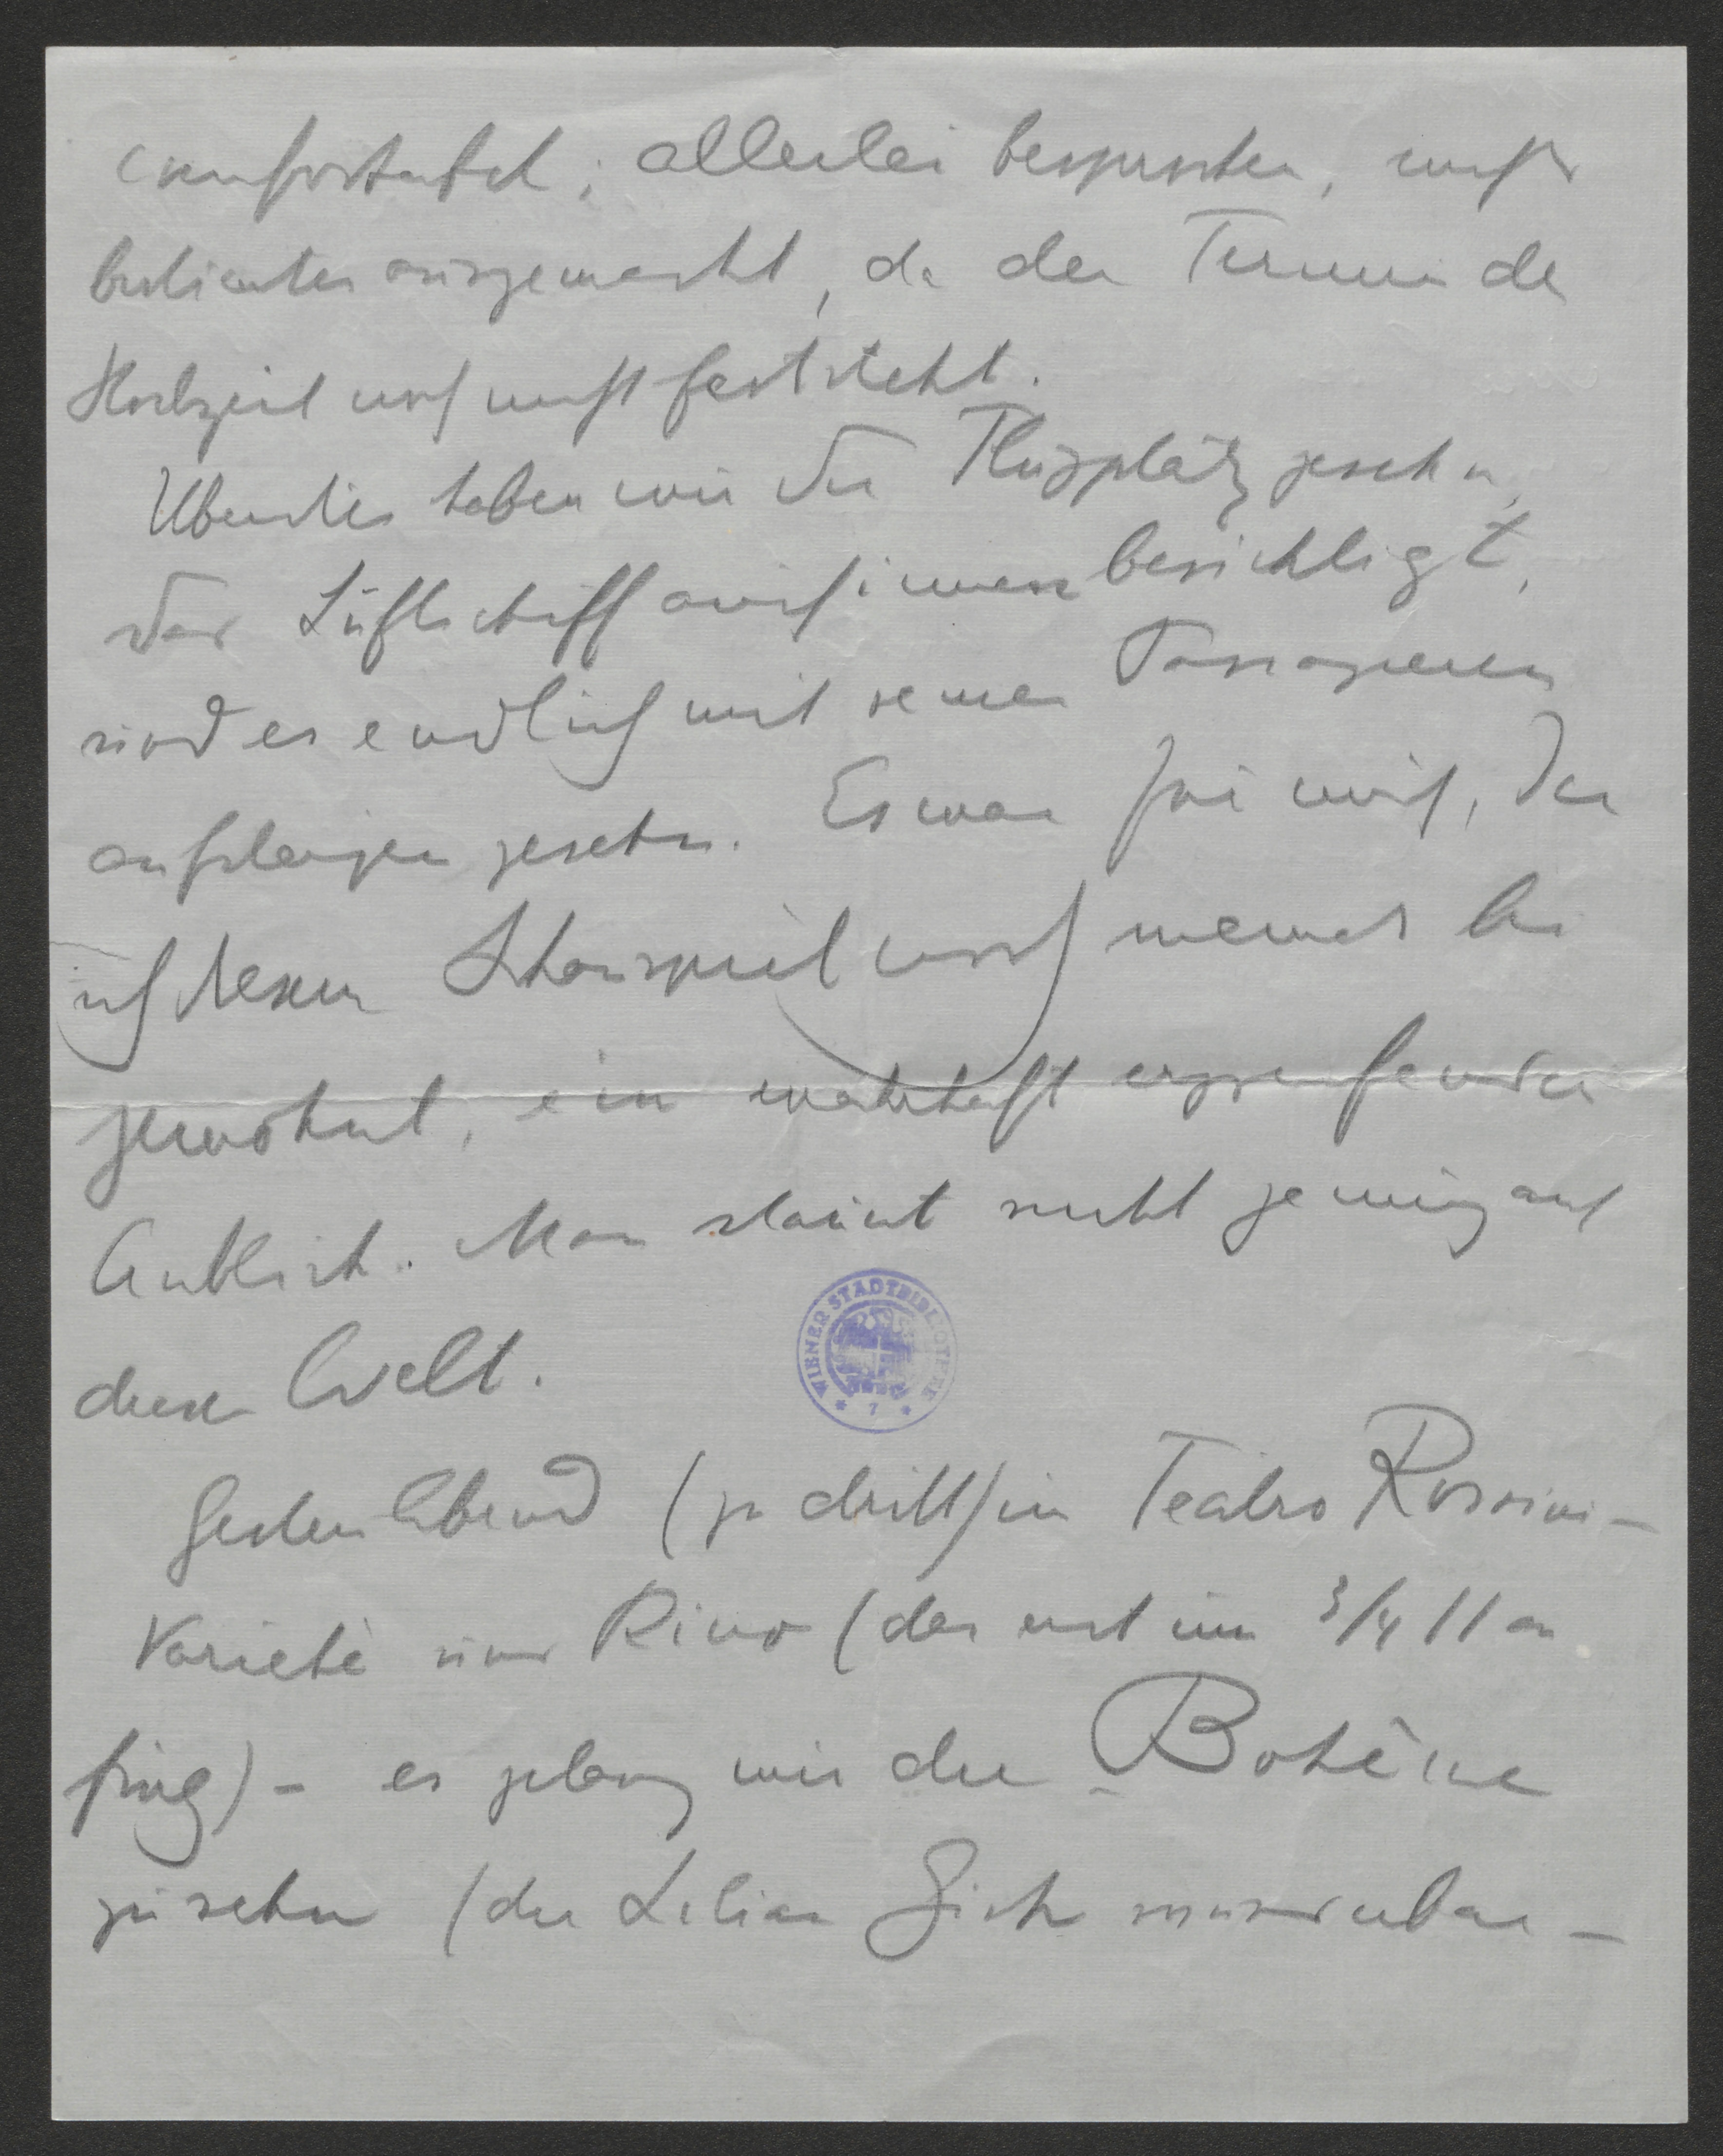 comfortabel; allerlei besprochen, nichts
bestimmtes ausgemacht, da der Termin der
Hochzeit noch nicht feststeht.
Überdies haben wir den Flugplatz gesehn,
das Luftschiff auch innen besichtigt,
und es endlich mit seinen Passagieren
aufsteigen gesehn. Es war für mich, der
ich diesem Schauspiel noch niemals bei
gewohnt, ein wahrhaft ergreifender
Anblick. Man staunt nicht genug auf
dieser Welt.
Gestern Abend (zu dritt) im Teatro Rossini –
Varieté und Kino (das erst um 3/4 11 an
fing) – es gelang mir die Bohême
zu sehn (die Lilian Gish wunderbar –
WIENER STADTBIBLIOTHEK
* 7 *